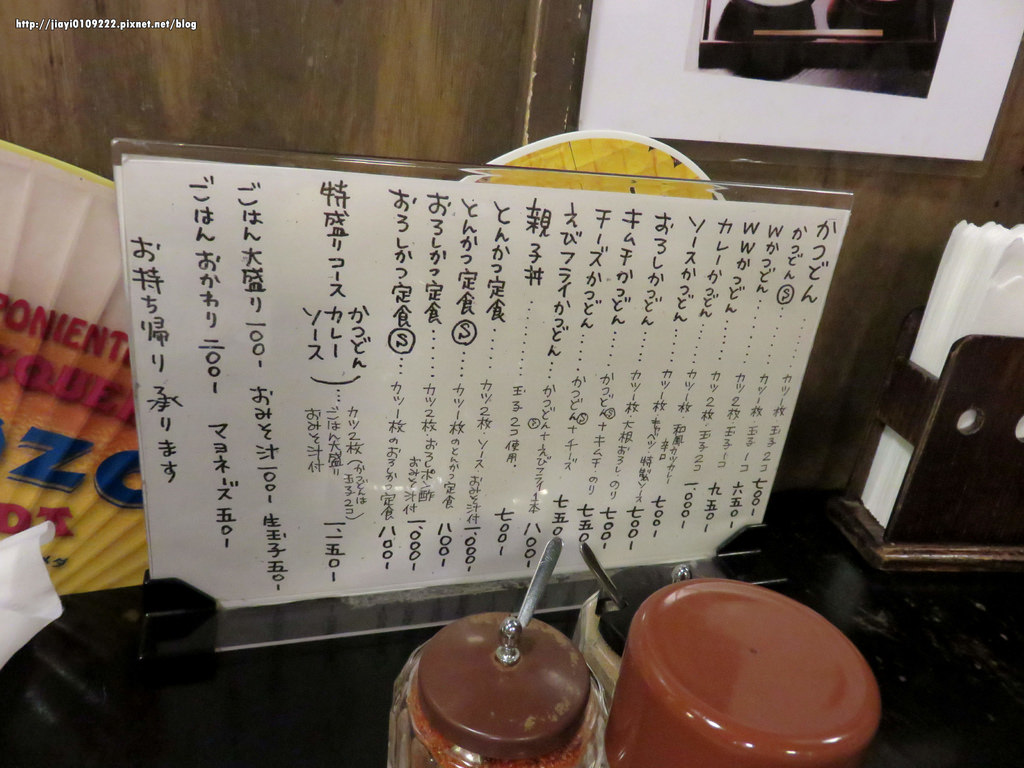 http://jiayi0109222.pixnet.net/blog
かつどん ........ カツ一枚・玉子2コ 七00-
かつどんⓈ ........ カツ一枚 玉子一コ 六五0-
Wかつどん ........ カツ2枚・玉子一コ 九五0-
WWかつどん ........ カツ2枚・玉子2コ 1,000-
カレーかつどん ........ カツ一枚 和風カツカレー 辛口 七00-
ソースかつどん ........ カツ一枚 キャベツ・特製ソース 七00-
おろしかつどん ........ カツ一枚・大根おろし・のり 七00-
キムチかつどん ........ かつどんⓈ+キムチ・のり 七五0-
チーズかつどん ........ かつどんⓈ+チーズ 七五0-
えびフライかつどん ... かつどんⓈ+えびフライ1本 八00-
親子丼 ........ 玉子2コ使用 七00-
とんかつ定食 ........ カツ2枚・ソース おみそ汁付 1,000-
とんかつ定食Ⓢ ...... カツ一枚のとんかつ定食 八00-
おろしかつ定食 ...... カツ2枚・おろしポン酢 おみそ汁付 1,000-
おろしかつ定食Ⓢ ... カツ一枚のおろしかつ定食 八00-
特盛りコース かつどん カレー ソース )... カツ2枚(かつどんは玉子2コ) ごはん大盛り おみそ汁付 1,二五0-
ごはん大盛り 100- おみそ汁 100- 生玉子 五0-
ごはん おかわり 二00- マヨネーズ 五0-
お持ち帰り 承ります